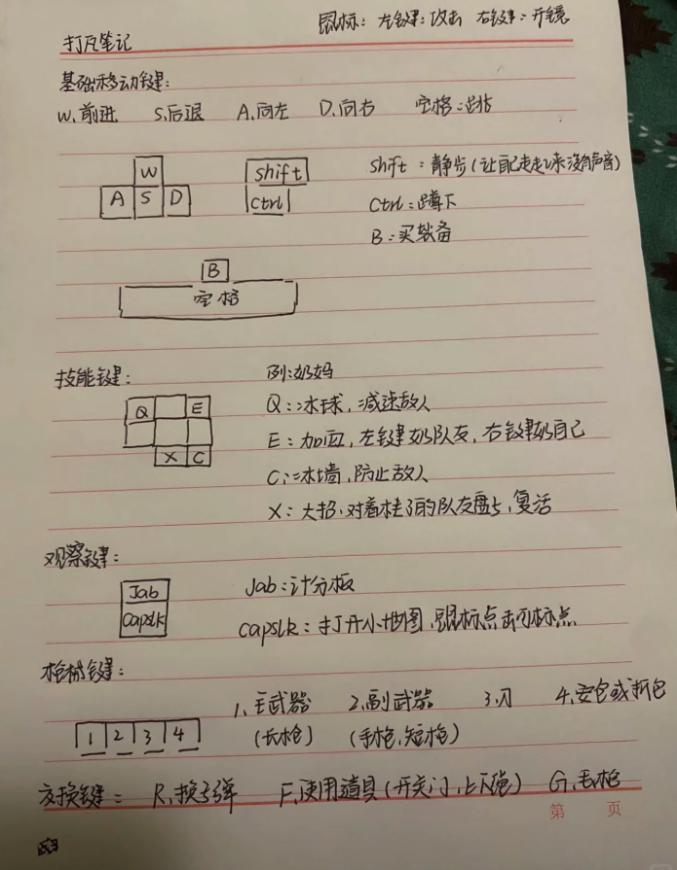 鼠标: 左键: 攻击 右键: 开镜
打瓦笔记
基础移动键:
W.前进 S.后退 A.向左 D.向右 空格:跳
W
A S D
shift
ctrl
shift: 静步(让自己走起来没有声音)
Ctrl: 蹲下
B: 买装备
B
空格
技能键:
例:奶妈
Q E
X C
Q:冰球,减速敌人
E: 加血,左键奶队友,右键奶自己
C:冰墙,防止敌人
X: 大招,对着挂了的队友盘点,复活
观察键:
Jab
capslk
Jab:计分板
capslk: 打开小地图,鼠标点击可标点
枪械键:
1 2 3 4
1,主武器 2,副武器 3,刀 4,安包或拆包
(长枪) (手枪,短枪)
交换键: R,换子弹 F,使用道具(开关门,上下绳) G,丢枪
第 页